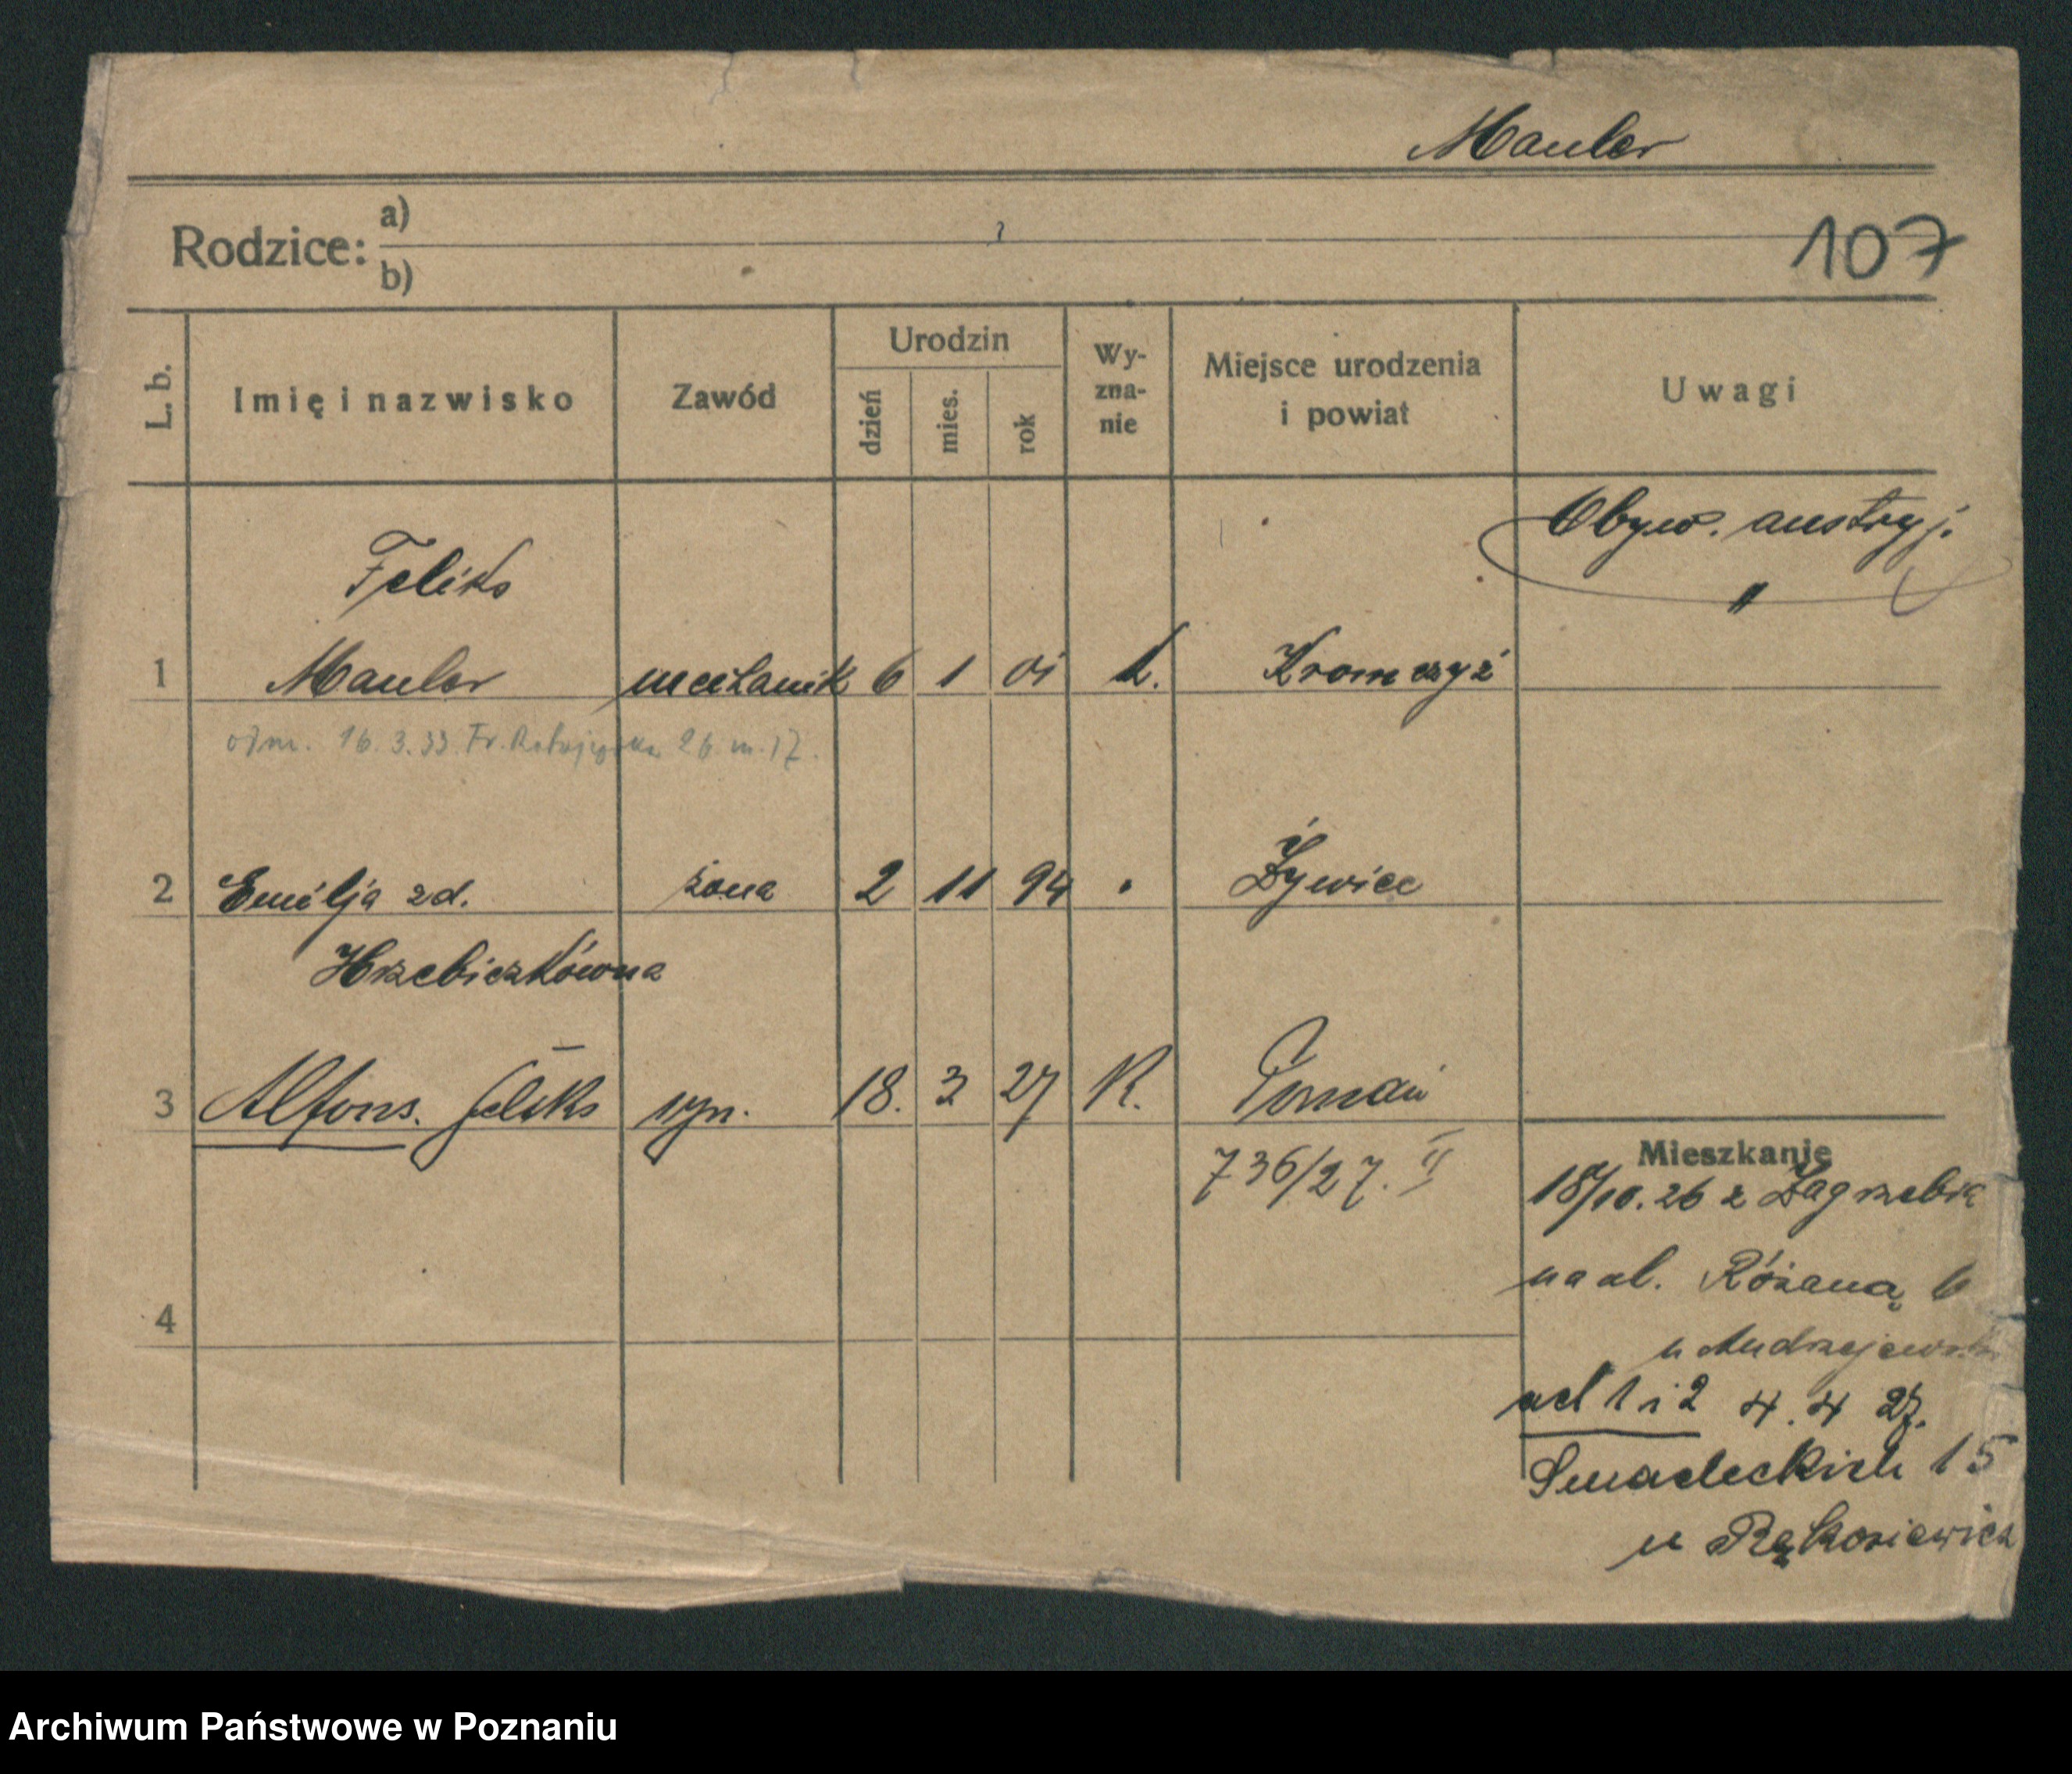 Mauler
Rodzice: a)
b)
107
L. b.
Imię i nazwisko
Zawód
Urodzin
dzień
mies.
rok
Wy-
zna-
nie
Miejsce urodzenia
i powiat
Uwagi
Obyw. austryj.
"
Feliks
1 Mauler mechanik 6 1 01 k.
odm. 16.3.33 Fr. Ratajczaka 26 m. 17.
2 Emilja zd. żona 2 11 94 " Żywiec
Hrzebiczkówna
3 Alfons. Feliks syn. 18. 3 27 R. Poznań
736/27. II
4
Mieszkanie
18/10. 26 z Zagrzebia
na ul. Różaną 6
u Andrzejewski
ad 1 i 2 4. 4 27.
Śniadeckich 15
u Rękosiewicz
Archiwum Państwowe w Poznaniu